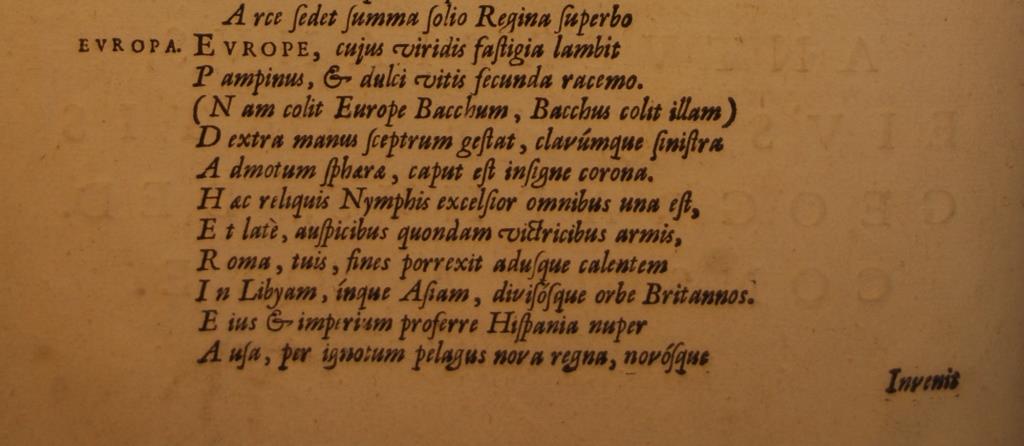 Arce sedet summa solio Regina superbo
EVROPA. EVROPE, cujus viridis fastigia lambit
Pampinus, & dulci vitis fecunda racemo.
(Nam colit Europe Bacchum, Bacchus colit illam)
Dextra manus sceptrum gestat, clavúmque sinistra
Admotum sphæræ, caput est insigne corona.
Hæc reliquis Nymphis excelsior omnibus una est,
Et latè, auspicibus quondam victricibus armis,
Roma, tuis, fines porrexit adusque calentem
In Libyam, ínque Asiam, divisósque orbe Britannos.
Eius & imperium proferre Hispania nuper
Ausa, per ignotum pelagus nova regna, novósque
Invenit